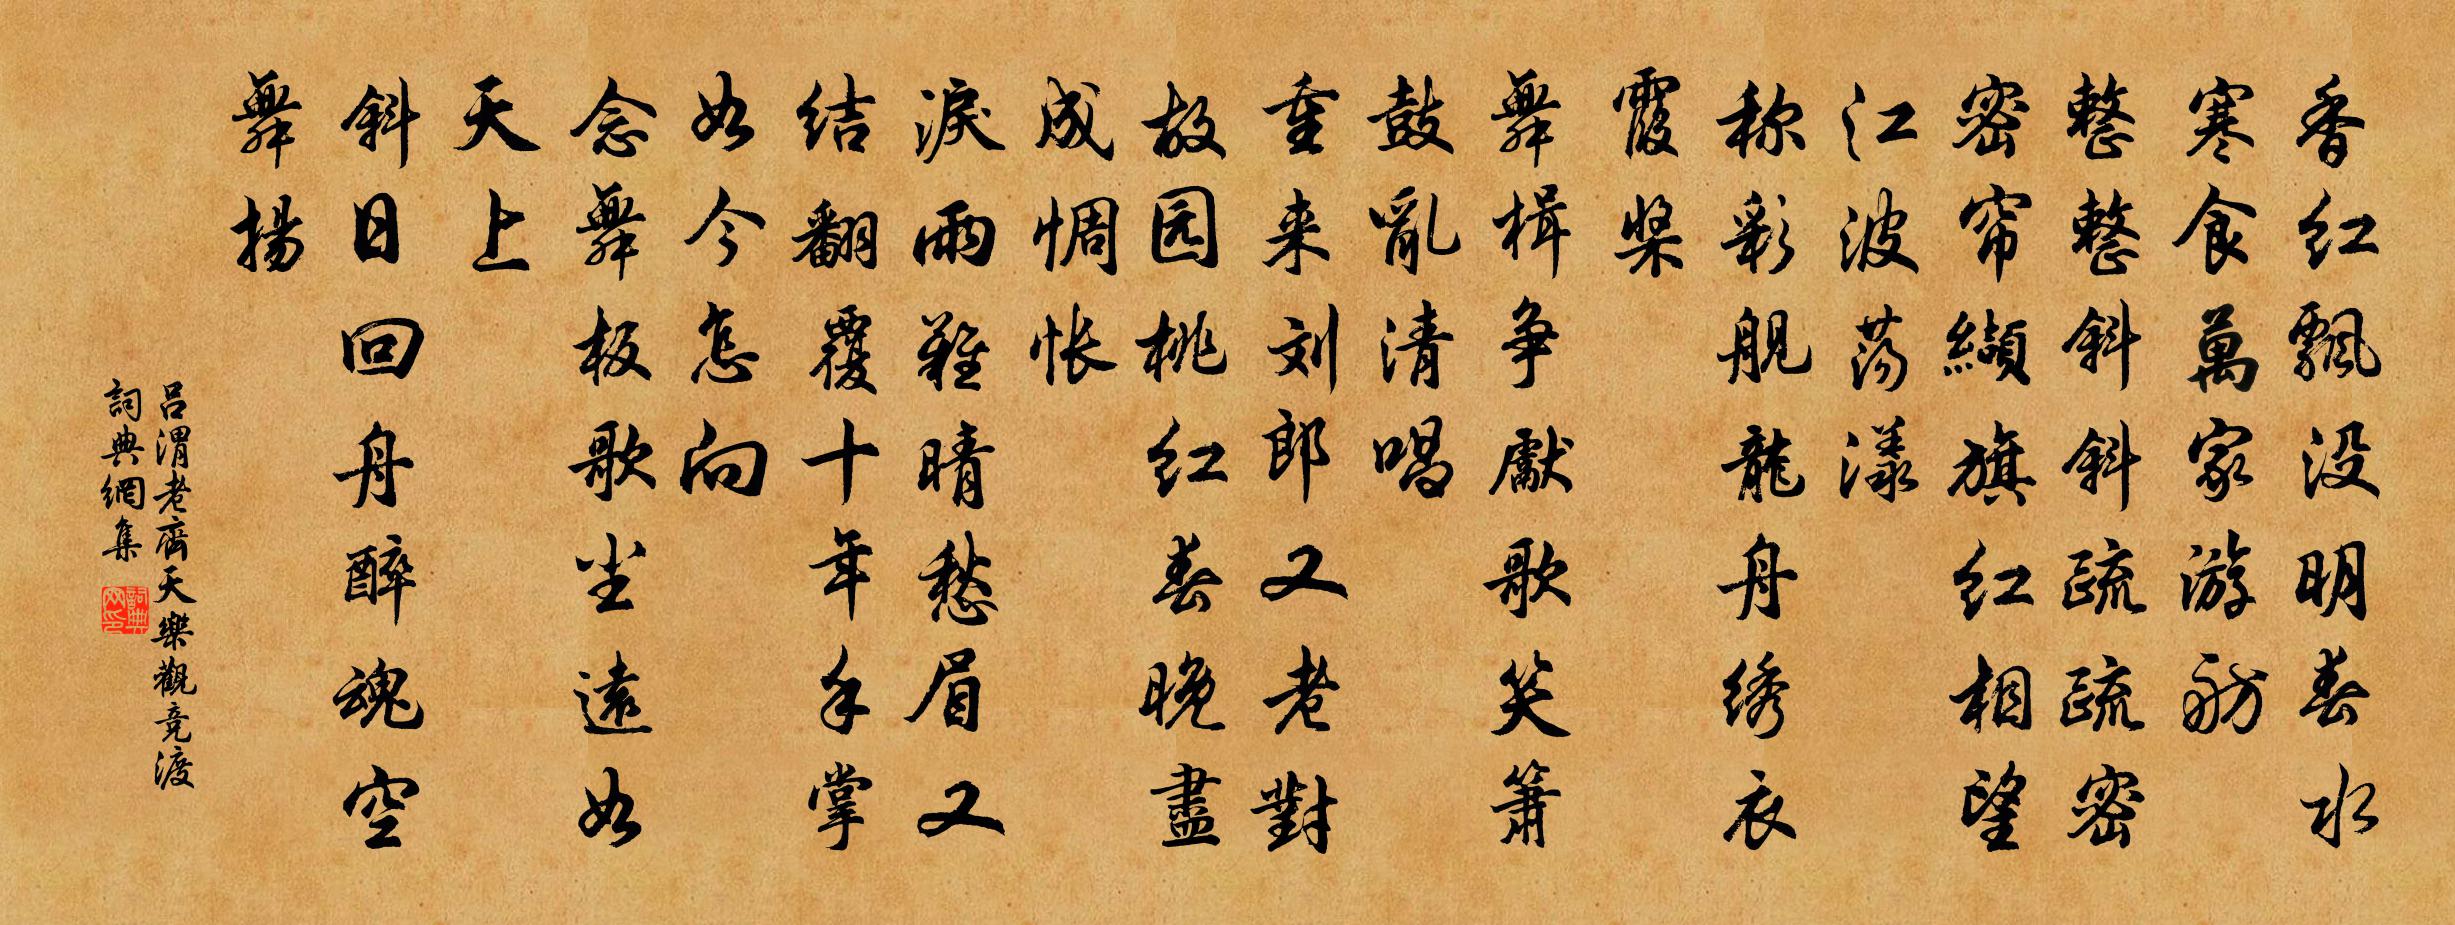 香红飘没明春水
寒食萬家游舫
整整斜斜疏疏密
密帘纈旗红相望
江波荡漾
称彩舰龍舟绣衣
霞桨
舞楫争獻歌笑箫
鼓亂清唱
重来刘郎又老對
故园桃红春晚盡
成惆怅
淚雨難晴愁眉又
结翻覆十年手掌
如今怎向
念舞板歌尘遠如
天上
斜日回舟醉魂空
舞揚
吕渭老齊天樂觀竞渡
詞典網集
詞典网印